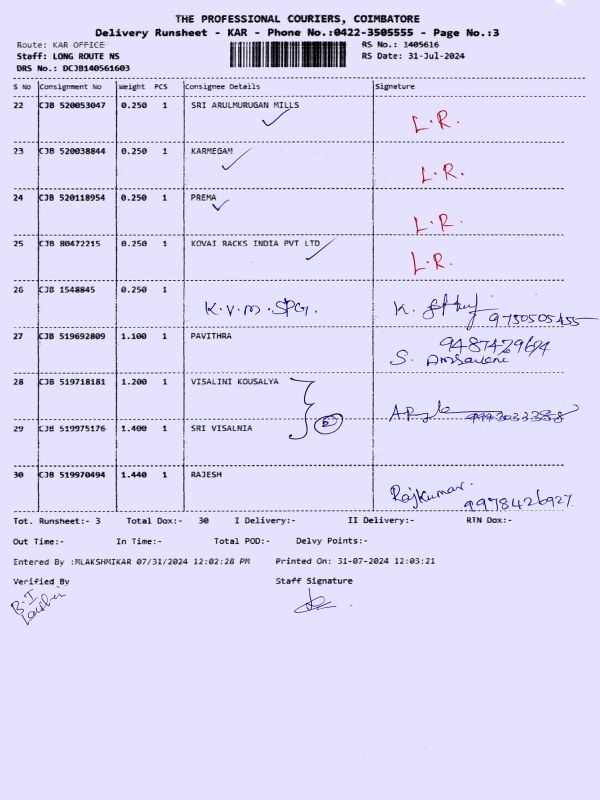 THE PROFESSIONAL COURIERS, COIMBATORE
Delivery Runsheet - KAR - Phone No.:0422-3505555 - Page No.:3
Route: KAR OFFICE RS No.: 1405616
Staff: LONG ROUTE NS RS Date: 31-Jul-2024
DRS No.: DCJB140561603
S No Consignment No Weight PCS Consignee Details Signature
22 CJB 520053047 0.250 1 SRI ARULMURUGAN MILLS
L.R.
23 CJB 520038844 0.250 1 KARMEGAM
L.R.
24 CJB 520118954 0.250 1 PREMA
L.R.
25 CJB 80472215 0.250 1 KOVAI RACKS INDIA PVT LTD
L.R.
26 CJB 1548845 0.250 1
K.V.M.SPG. K.
9750505455
27 CJB 519692809 1.100 1 PAVITHRA
S.
28 CJB 519718181 1.200 1 VISALINI KOUSALYA
29 CJB 519975176 1.400 1 SRI VISALNIA
30 CJB 519970494 1.440 1 RAJESH
Rajkumar.
9978426927
Tot. Runsheet:- 3 Total Dox:- 30 I Delivery:- II Delivery:- RTN Dox:-
Out Time:- In Time:- Total POD:- Delvy Points:-
Entered By :MLAKSHMIKAR 07/31/2024 12:02:28 PM Printed On: 31-07-2024 12:03:21
Verified By Staff Signature